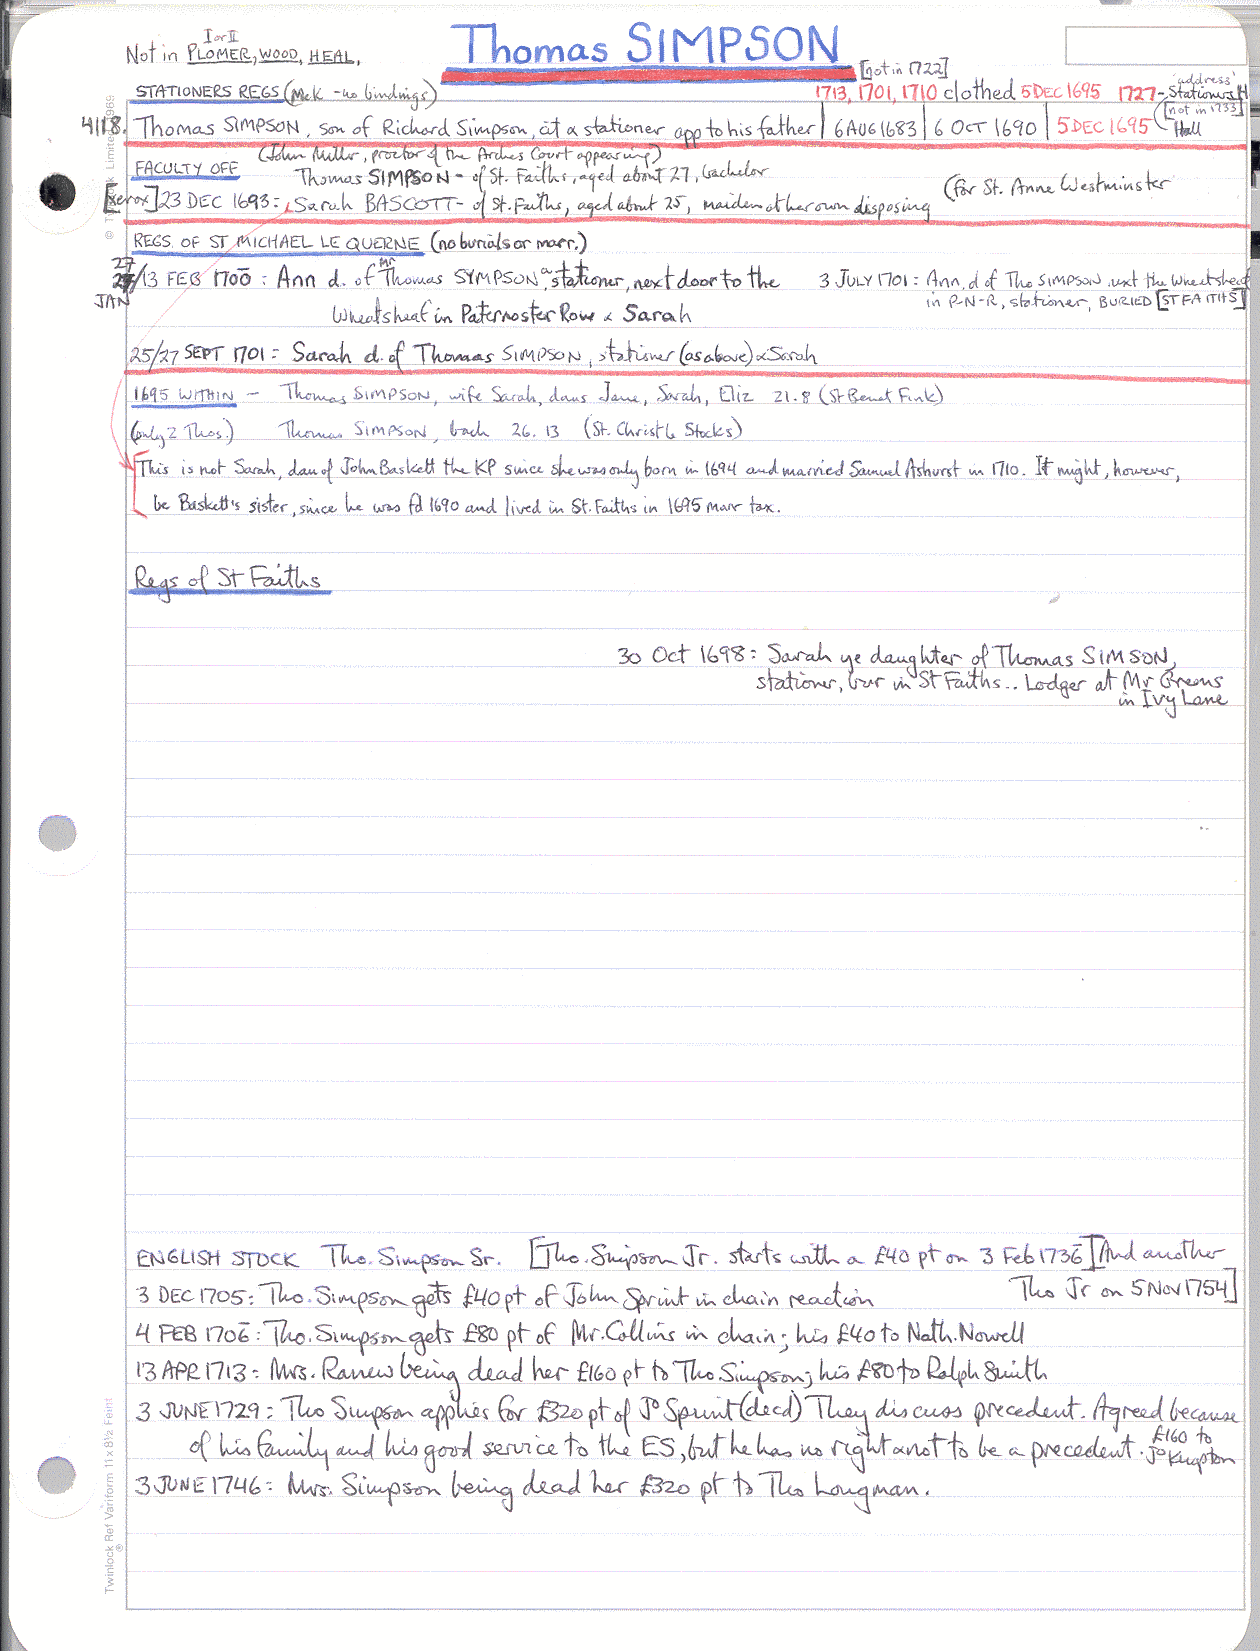 I or II
Not in PLOMER, WOOD, HEAL,
Thomas SIMPSON
[not in 1722]
STATIONERS REGS (McK - no bindings)
1713, 1701, 1710 clothed 5 DEC 1695 1727 - Stationers H
'address'
4118. Thomas SIMPSON, son of Richard Simpson, cit a stationer app to his father | 6 AUG 1683 | 6 OCT 1690 | 5 DEC 1695 (not in 1733)
Hall
(John Miller, proctor of the Arches Court appearing)
FACULTY OFF Thomas SIMPSON - of St. Faiths, aged about 27, bachelor
(for St. Anne Westminster
[xerox] 23 DEC 1693: Sarah BASCOTT - of St. Faiths, aged about 25, maiden at her own disposing
REGS. OF ST MICHAEL LE QUERNE (no burials or marr.)
27/13 FEB 1700 : Ann d. of Mr Thomas SYMPSON a stationer, next door to the
JAN
Wheatsheaf in Paternoster Row & Sarah
3 JULY 1701: Ann, d of Tho SIMPSON next the Wheatsheaf
in P-N-R, stationer, BURIED [ST FAITHS]
25/27 SEPT 1701: Sarah d. of Thomas SIMPSON, stationer (as above) & Sarah
1695 WITHIN - Thomas SIMPSON, wife Sarah, daus Jane, Sarah, Eliz 21.8 (St Benet Fink)
(only 2 Thos.) Thomas SIMPSON, bach 26.13 (St. Christ Le Stocks)
This is not Sarah, dau of John Baskett the KP since she was only born in 1694 and married Samuel Ashurst in 1710. It might, however,
be Baskett's sister, since he was fd 1690 and lived in St. Faiths in 1695 marr tax.
Regs of St Faiths
30 Oct 1698: Sarah ye daughter of Thomas SIMSON,
stationer, bur in St Faiths.. Lodger at Mr Greens
in Ivy Lane
ENGLISH STOCK Tho. Simpson Sr. [Tho. Simpson Jr. starts with a £40 pt on 3 Feb 1736] And another
Tho Jr on 5 Nov 1754]
3 DEC 1705: Tho. Simpson gets £40 pt of John Sprint in chain reaction
4 FEB 1706: Tho. Simpson gets £80 pt of Mr. Collins in chain; his £40 to Nath. Nowell
13 APR 1713: Mrs. Ranew being dead her £160 pt to Tho Simpson; his £80 to Ralph Smith
3 JUNE 1729: Tho Simpson applies for £320 pt of Jo Sprint (decd) They discuss precedent. Agreed because
of his family and his good service to the ES, but he has no right & not to be a precedent. £160 to
Jo Knapton
3 JUNE 1746: Mrs. Simpson being dead her £320 pt to Tho Longman.
Twinlock Ref Variform 11 x 8½ Feint